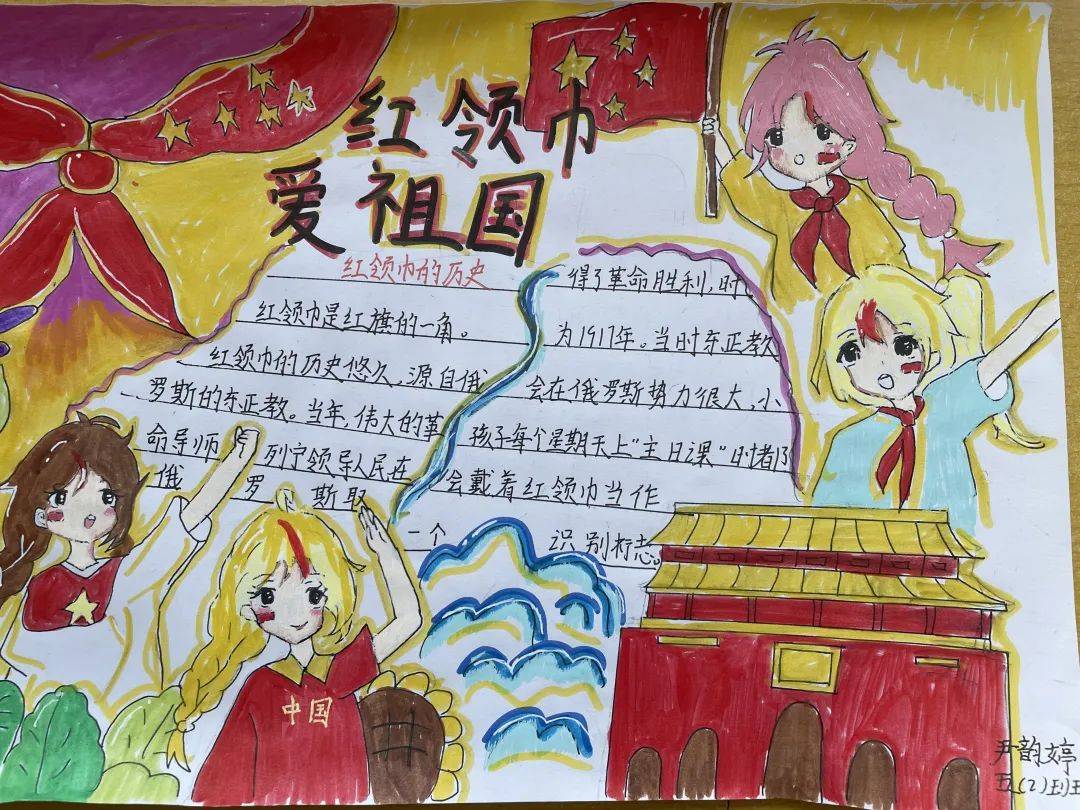 红领巾
爱祖国
红领巾的历史
红领巾是红旗的一角。
红领巾的历史悠久,源自俄
罗斯的东正教。当年,伟大的革
命导师 列宁领导人民在
俄 罗 斯取
得了革命胜利,时
为1917年。当时东正教
会在俄罗斯势力很大,小
孩子每个星期天上“主日课”时都
会戴着红领巾当作
一个 识别标志。
中国
尹韵婷
五(2)班